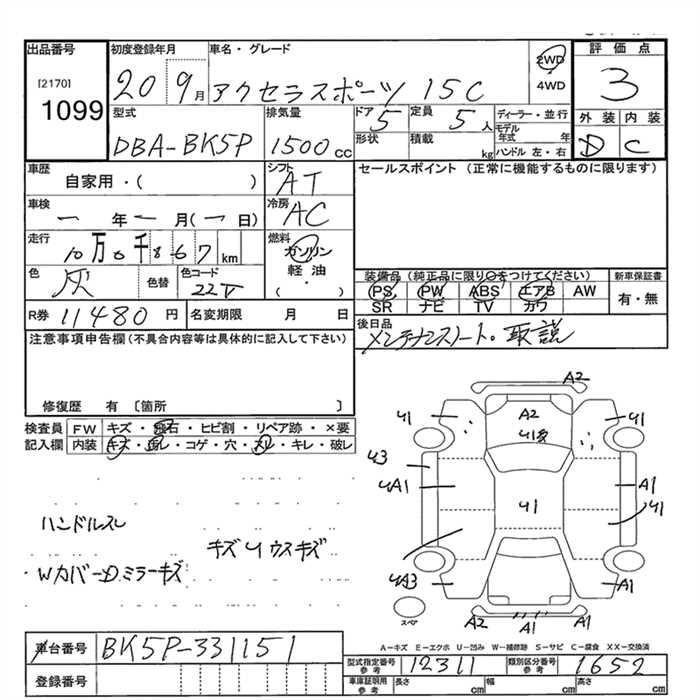 出品番号
[2170]
1099
初度登録年月
20 9月
車名・グレード
アクセラスポーツ 15C
2WD
4WD
評価点
3
外装 内装
D C
型式
DBA-BK5P
排気量
1500cc
ドア
5
定員
5人
形状
積載
kg
ディーラー・並行
モデル年式 年
ハンドル 左・右
車歴
自家用・( )
車検
一年一月(一日)
走行
10万0千867km
色
灰
色替
色コード
22V
シフト
AT
冷房
AC
燃料
ガソリン
軽油・
( )
R券 11480円
名変期限 月 日
セールスポイント (正常に機能するものに限ります)
装備品 (純正品に限り○をつけてください)
PS PW ABS エアB AW
SR ナビ TV カワ
新車保証書
有・無
後日品
メンテナンスノート・取説
注意事項申告欄(不具合内容等は具体的に記入して下さい)
修復歴 有 〔箇所 〕
検査員記入欄
FW キズ・飛石・ヒビ割・リペア跡・×要
内装 キズ・汚レ・コゲ・穴・スレ・キレ・破レ
ハンドルスレ
キズ U ウスキズ
WカバーD.ミラーキズ
A2
U1
A2
U1
U1
U3
UA1
U1
A1
U1
UA3
A1
A1
A2
スペア
A-キズ E-エクボ U-凹み W-補修跡 S-サビ C-腐食 XX-交換済
車台番号
BK5P-331151
登録番号
型式指定番号 参考
12311
類別区分番号 参考
1652
車庫証明用 参考
長さ cm
幅 cm
高さ cm